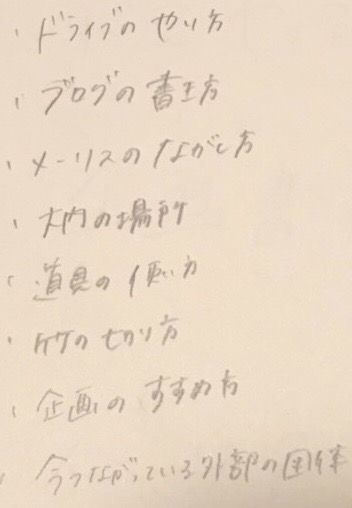 ・ドライブのやり方
・ブログの書き方
・メーリスのながし方
・大内の場所
・道具の使い方
・竹の切り方
・企画のすすめ方
・今つながっている外部の団体